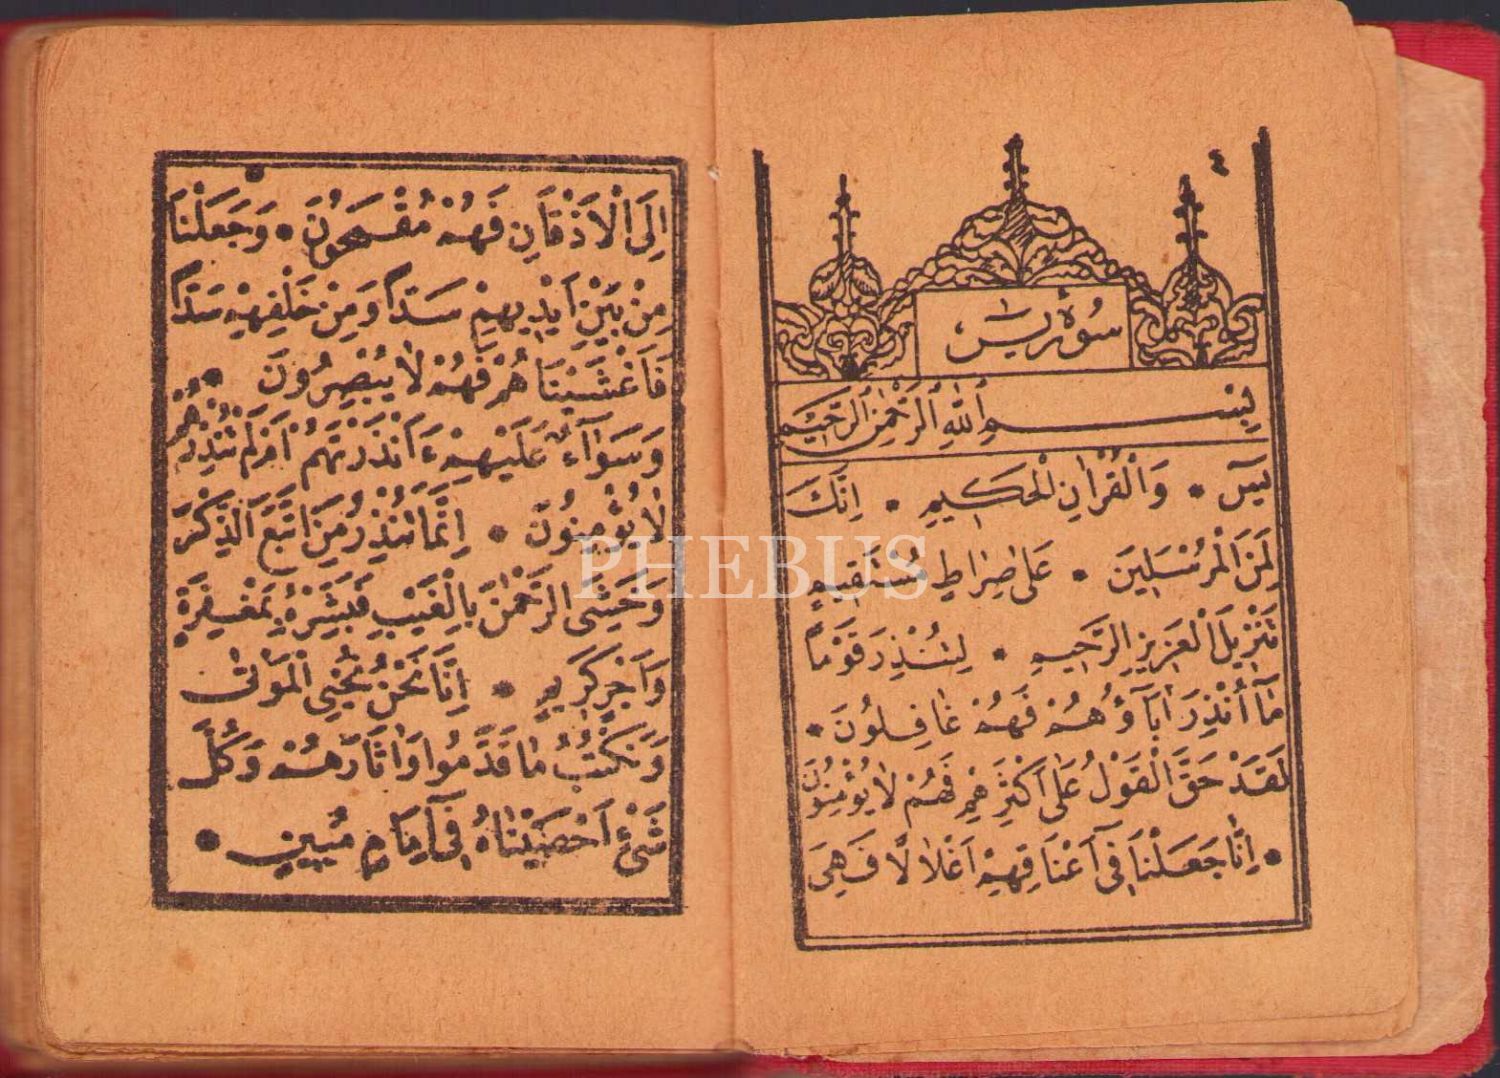 ٤
سورة يس
بِسْمِ اللهِ الرَّحْمٰنِ الرَّحِيمِ
يٰسٓ * وَالْقُرْاٰنِ الْحَكِيمِ * اِنَّكَ
لَمِنَ الْمُرْسَلِينَ * عَلٰى صِرَاطٍ مُسْتَقِيمٍ
تَنْزِيلَ الْعَزِيزِ الرَّحِيمِ * لِتُنْذِرَ قَوْمًا
مَآ اُنْذِرَ اٰبَآؤُهُمْ فَهُمْ غَافِلُونَ *
لَقَدْ حَقَّ الْقَوْلُ عَلٰى اَكْثَرِهِمْ فَهُمْ لَا يُؤْمِنُونَ
* اِنَّا جَعَلْنَا فِىٓ اَعْنَاقِهِمْ اَغْلَالًا فَهِىَ
اِلَى الْاَذْقَانِ فَهُمْ مُقْمَحُونَ * وَجَعَلْنَا
مِنْ بَيْنِ اَيْدِيهِمْ سَدًّا وَمِنْ خَلْفِهِمْ سَدًّا
فَاَغْشَيْنَاهُمْ فَهُمْ لَا يُبْصِرُونَ *
وَسَوَآءٌ عَلَيْهِمْ ءَاَنْذَرْتَهُمْ اَمْ لَمْ تُنْذِرْهُمْ
لَا يُؤْمِنُونَ * اِنَّمَا تُنْذِرُ مَنِ اتَّبَعَ الذِّكْرَ
وَخَشِىَ الرَّحْمٰنَ بِالْغَيْبِ فَبَشِّرْهُ بِمَغْفِرَةٍ
وَاَجْرٍ كَرِيمٍ * اِنَّا نَحْنُ نُحْيِى الْمَوْتٰى
وَنَكْتُبُ مَا قَدَّمُوا وَاٰثَارَهُمْ وَكُلَّ
شَىْءٍ اَحْصَيْنَاهُ فِىٓ اِمَامٍ مُبِينٍ *
PHEBUS